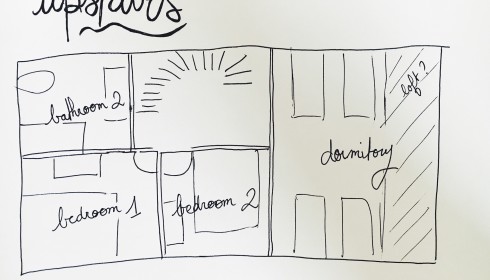 upstairs
loft ?
bathroom 2
dormitory
bedroom 1
bedroom 2